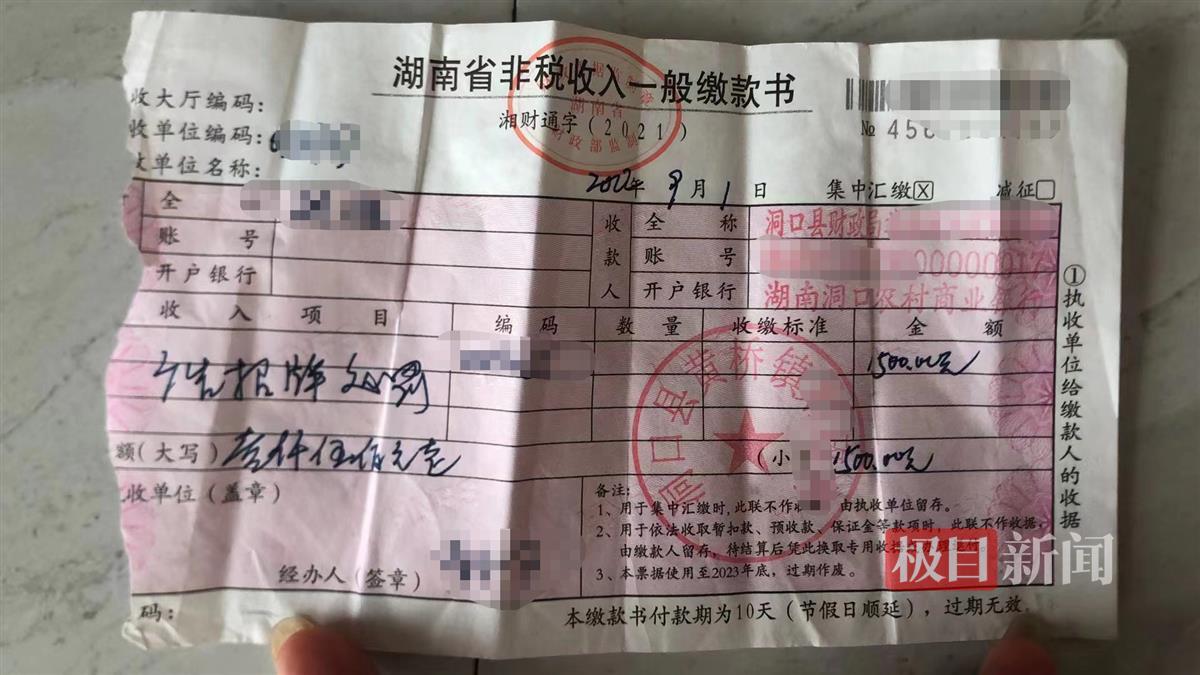 湖南省非税收入一般缴款书
湘财通字(2021)
收大厅编码:
收单位编码:
收单位名称:
№ 458
2022年 9月 1日 集中汇缴☒ 减征☐
全 收款人 全称 洞口县财政局
账号 账号 0000001
开户银行 开户银行 湖南洞口农村商业银行
收入项目 编码 数量 收缴标准 金额
广告招牌处罚 1500.00元
额(大写) 壹仟伍佰元 (小 1500.00元
收单位(盖章)
经办人(签章)
码:
备注:
1、用于集中汇缴时,此联不作收 由执收单位留存。
2、用于依法收取暂扣款、预收款、保证金等款项时,此联不作收据,
由缴款人留存,待结算后凭此换取专用收
3、本票据使用至2023年底,过期作废。
本缴款书付款期为10天(节假日顺延),过期无效。
①执收单位给缴款人的收据
湖南省
财政部监制
洞口县黄桥镇
极目新闻